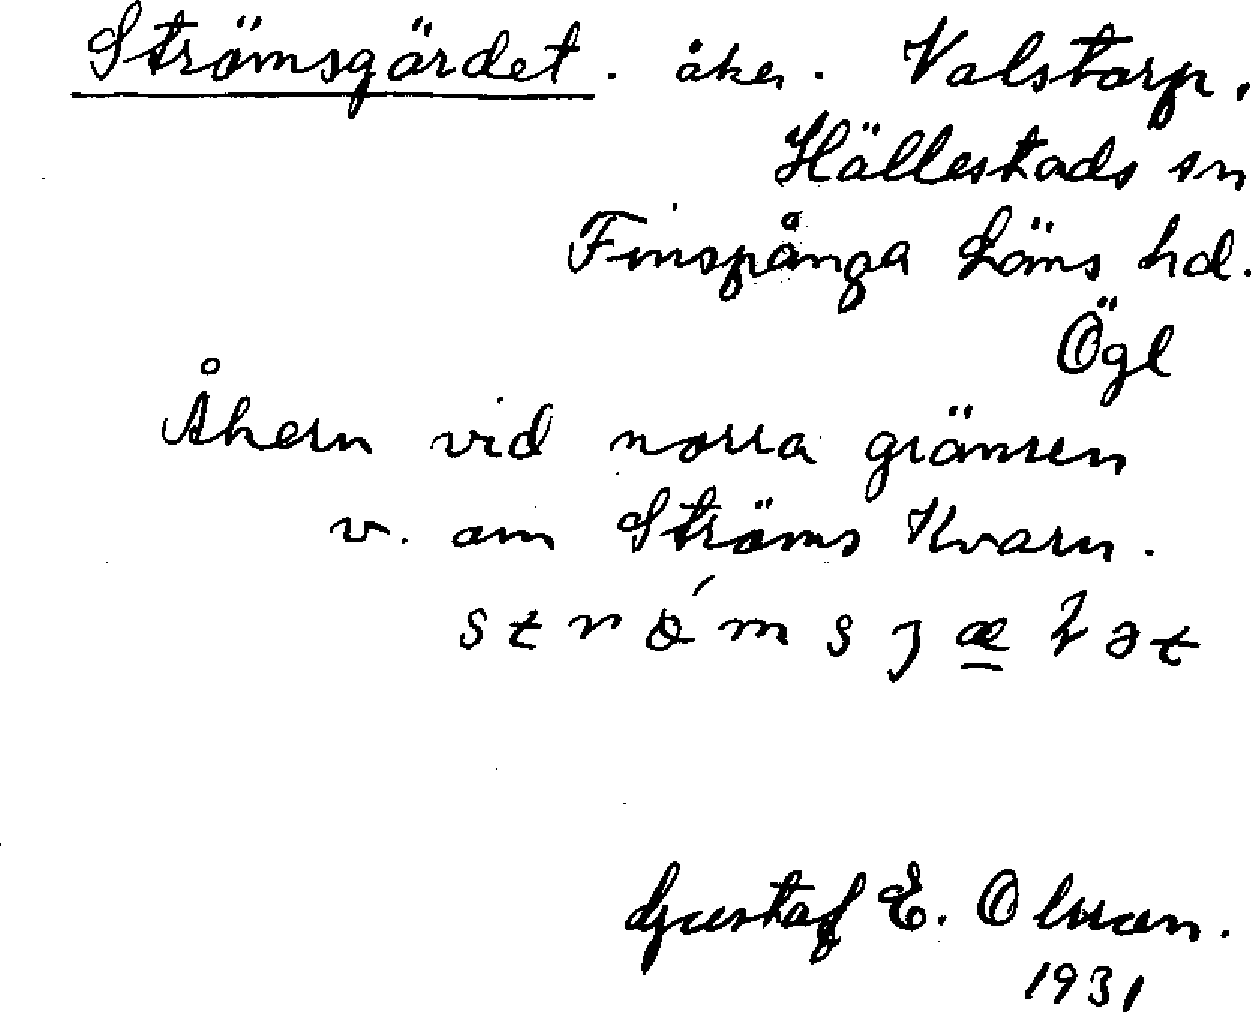 Strömsgärdet. åker. Valstorp,
Hällestads sn
Finspånga Läns hd.
Ögl
Åkern vid norra gränsen
v. om Ströms Kvarn.
Gustaf E. Olsson.
1931